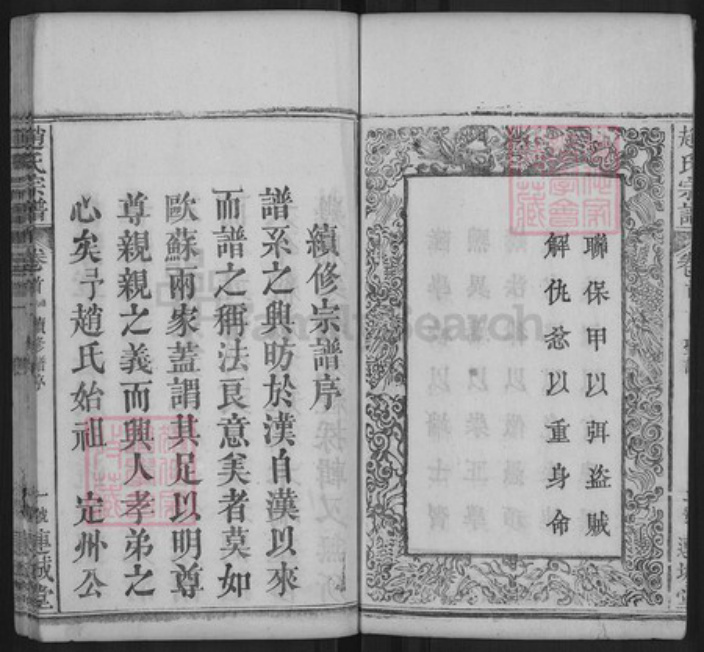 聯保甲以弭盜賊
解仇忿以重身命
趙氏宗譜
卷首
續修宗譜序
譜系之興昉於漢自漢以來
而譜之稱法良意美者莫如
歐蘇兩家蓋謂其足以明尊
尊親親之義而興人孝弟之
心矣予趙氏始祖 定州公
趙氏宗譜
卷首
續修譜序
一號
連城堂
FamilySearch